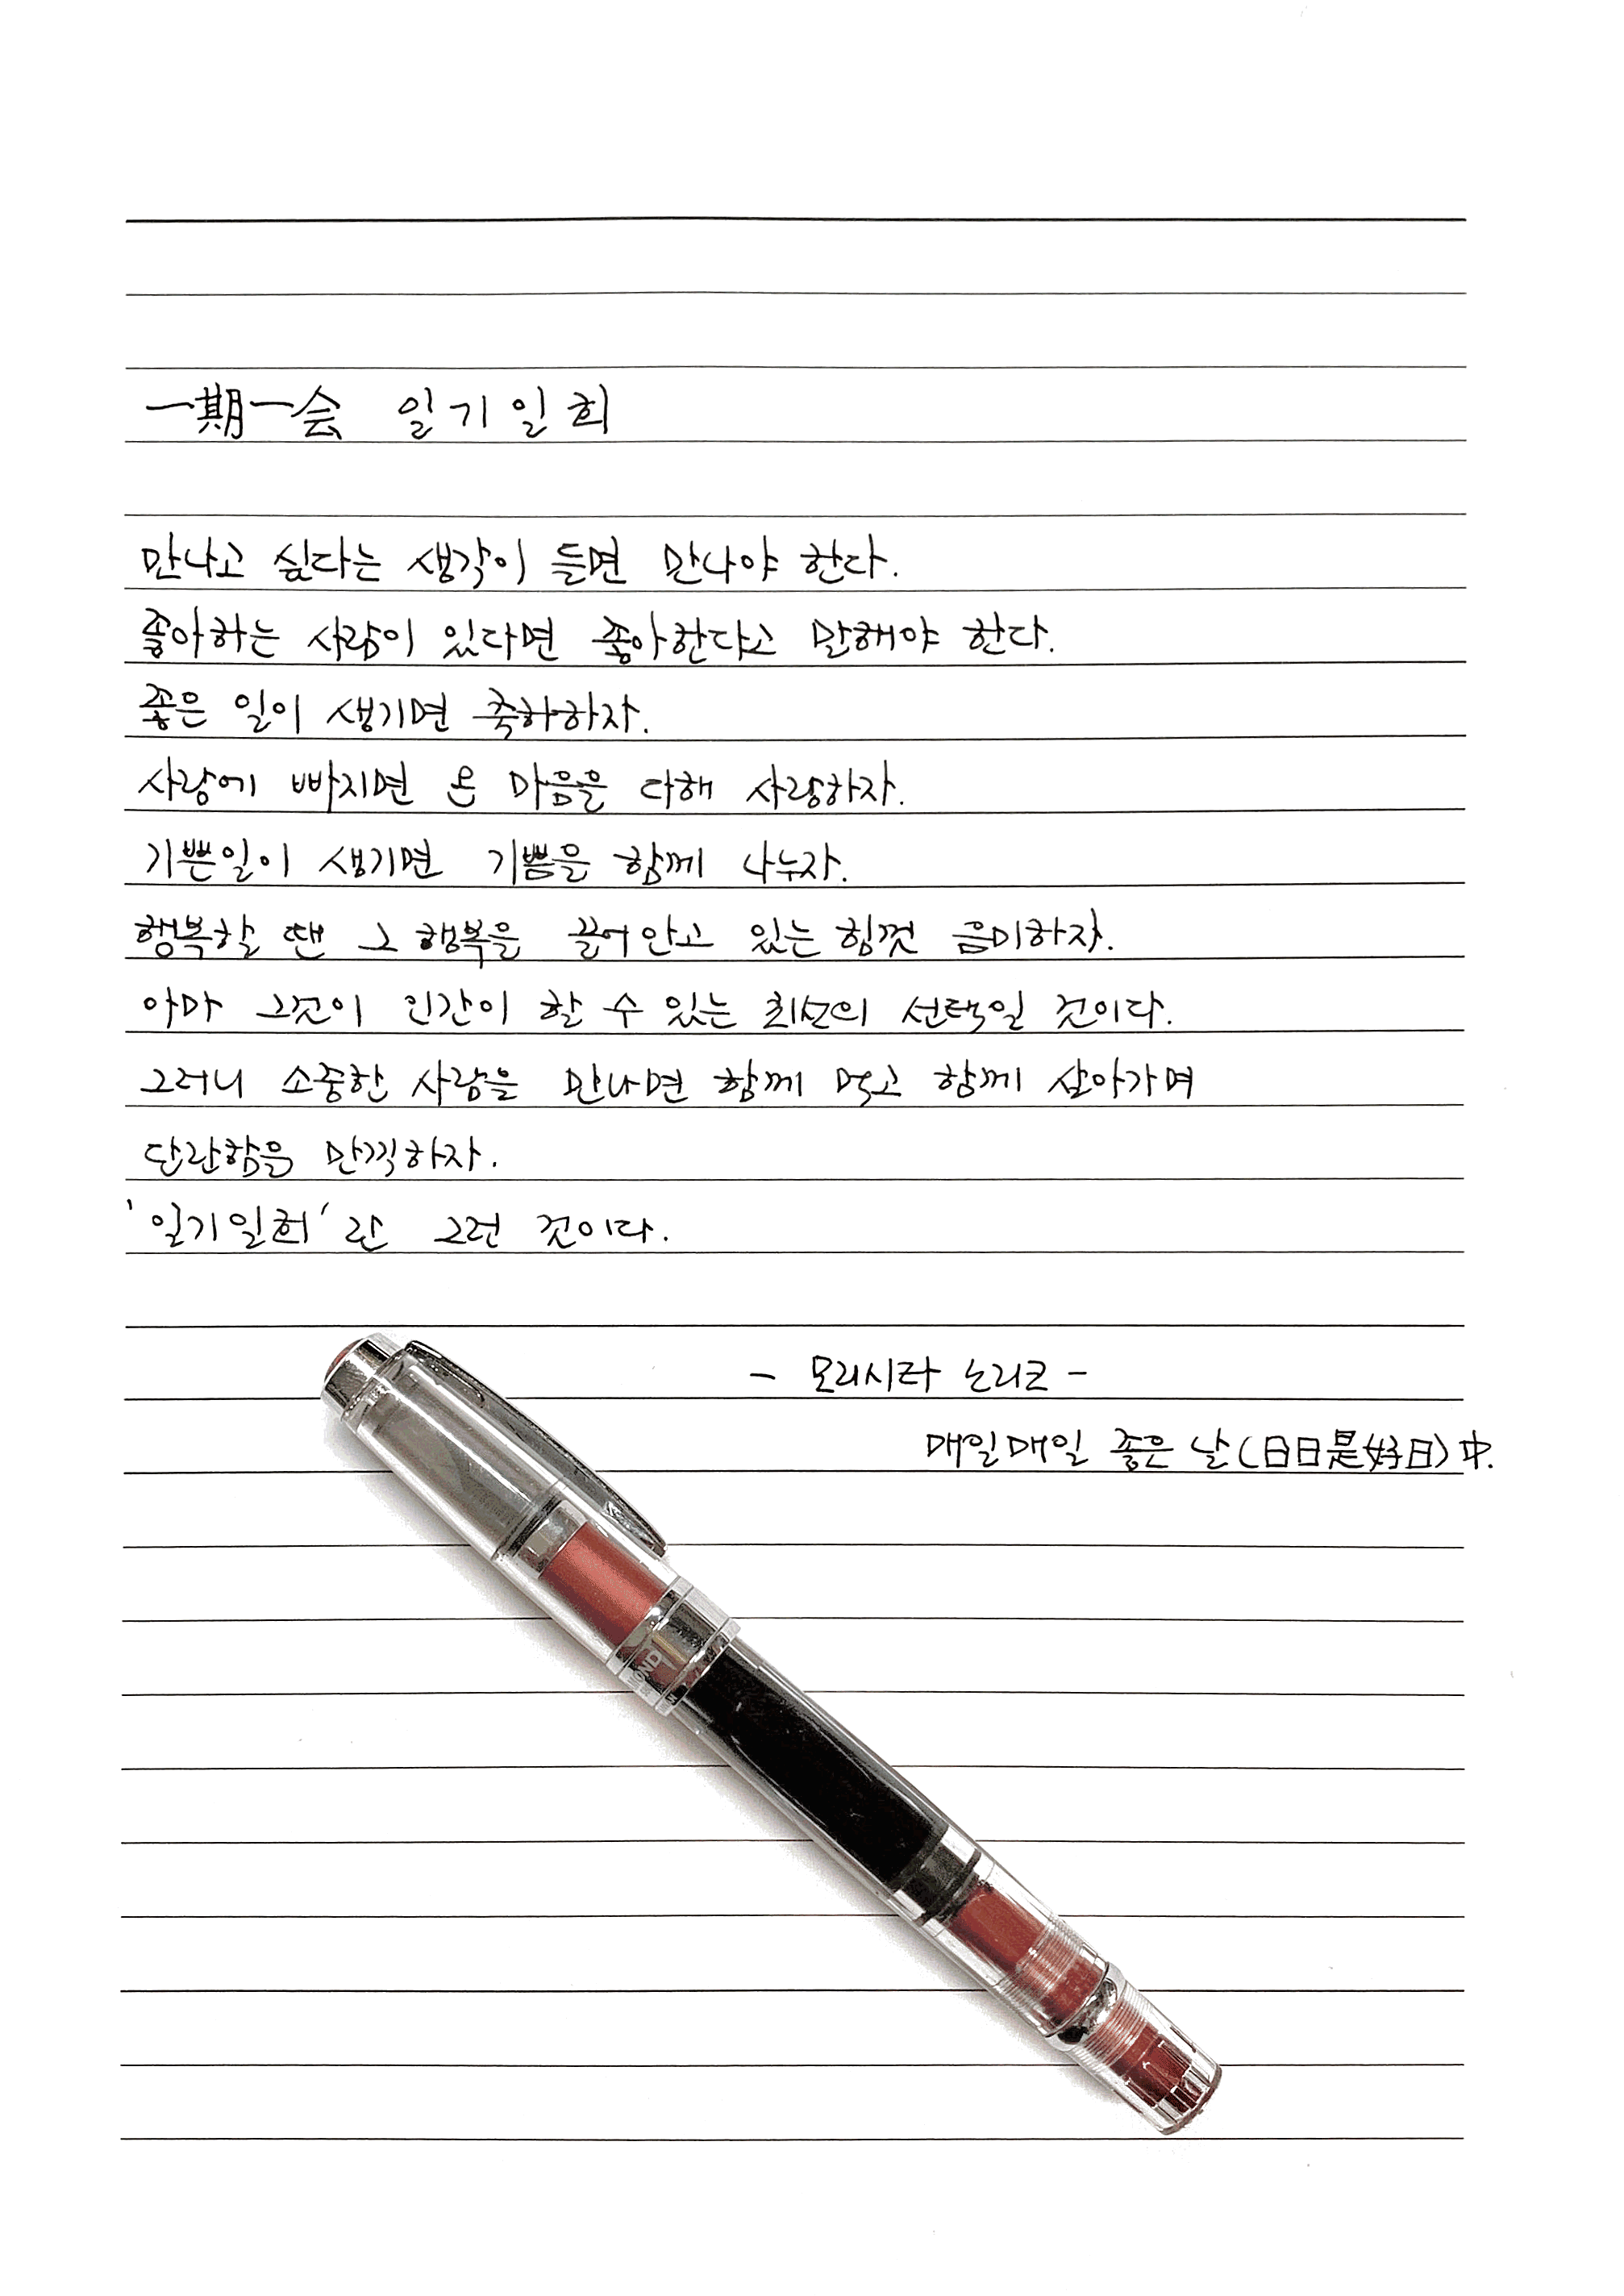 一期一会 일기일회
만나고 싶다는 생각이 들면 만나야 한다.
좋아하는 사람이 있다면 좋아한다고 말해야 한다.
좋은 일이 생기면 축하하자.
사랑에 빠지면 온 마음을 다해 사랑하자.
기쁜일이 생기면 기쁨을 함께 나누자.
행복할 땐 그 행복을 끌어안고 있는 힘껏 음미하자.
아마 그것이 인간이 할 수 있는 최선의 선택일 것이다.
그러니 소중한 사람을 만나면 함께 먹고 함께 살아가며
단란함을 만끽하자.
'일기일회'란 그런 것이다.
- 모리시타 노리코 -
매일매일 좋은 날(日日是好日)中.
OND